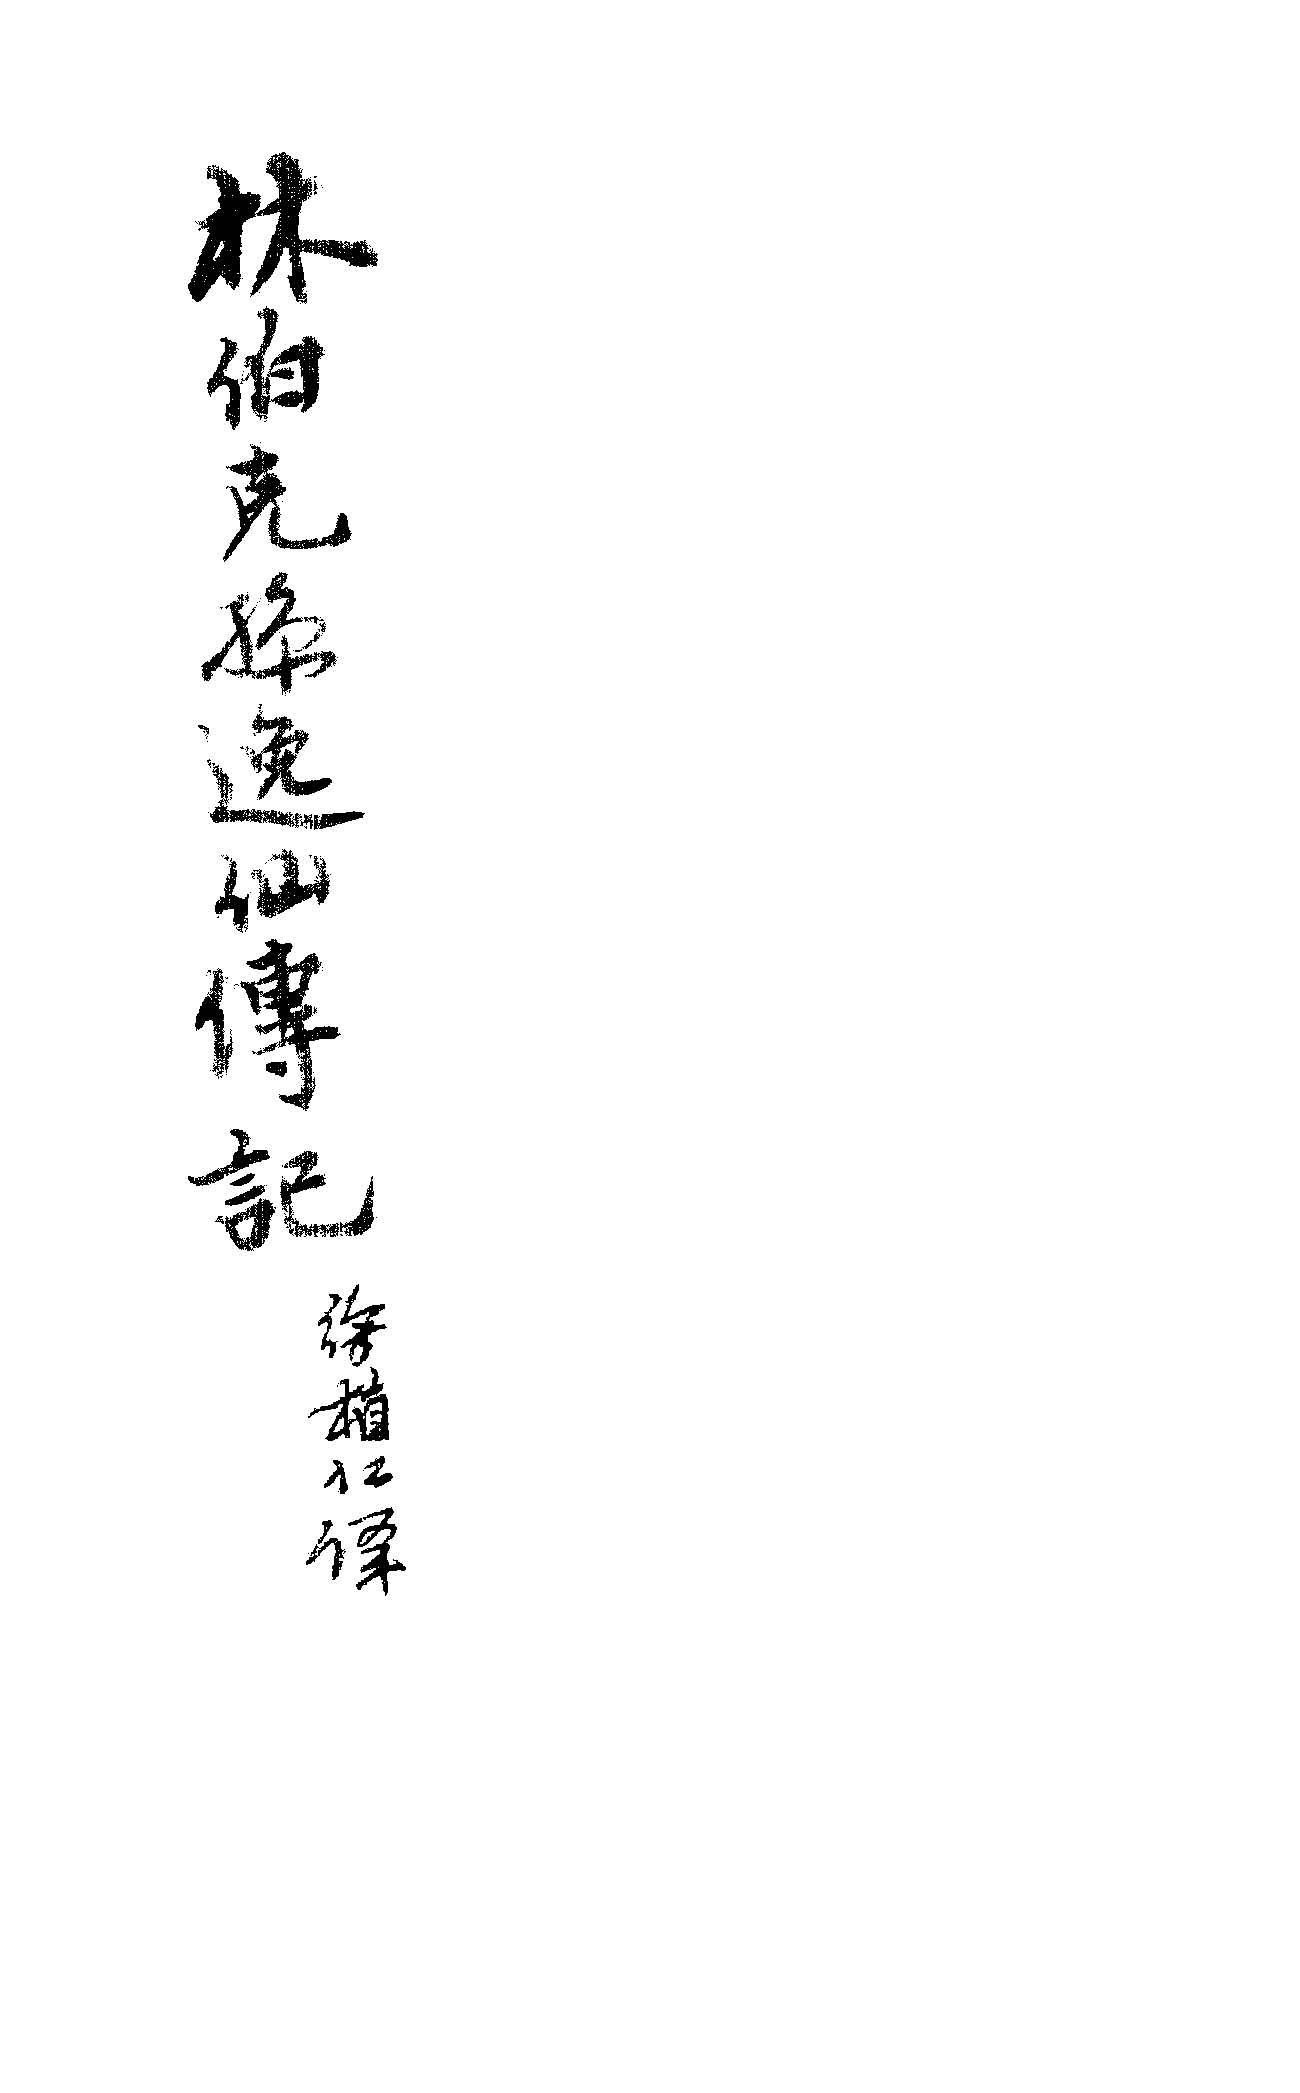 林伯克孫逸仙傳記
徐植仁譯